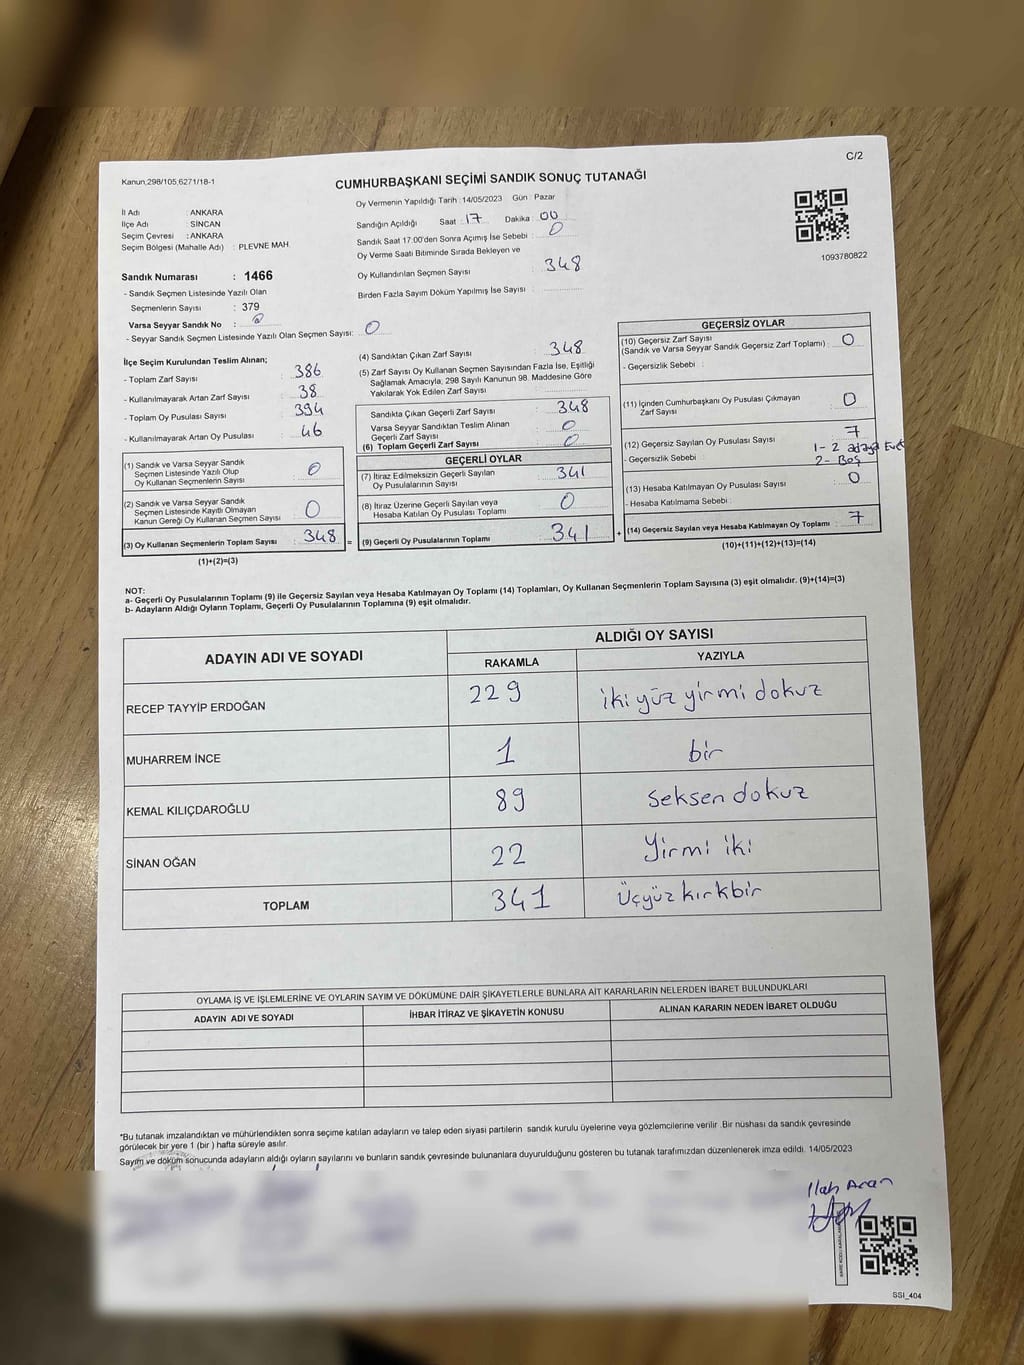 C/2
Kanun,298/105,6271/18-1
CUMHURBAŞKANI SEÇİMİ SANDIK SONUÇ TUTANAĞI
Oy Vermenin Yapıldığı Tarih : 14/05/2023 Gün : Pazar
İl Adı : ANKARA
İlçe Adı : SİNCAN
Seçim Çevresi : ANKARA
Seçim Bölgesi (Mahalle Adı) : PLEVNE MAH.
Sandığın Açıldığı Saat : 17 Dakika : 00
Sandık Saat 17:00'den Sonra Açımış İse Sebebi : 0
Oy Verme Saati Bitiminde Sırada Bekleyen ve
Oy Kullandırılan Seçmen Sayısı : 348
Birden Fazla Sayım Döküm Yapılmış İse Sayısı :
1093780822
Sandık Numarası : 1466
- Sandık Seçmen Listesinde Yazılı Olan
Seçmenlerin Sayısı : 379
Varsa Seyyar Sandık No : 0
- Seyyar Sandık Seçmen Listesinde Yazılı Olan Seçmen Sayısı: 0
İlçe Seçim Kurulundan Teslim Alınan;
- Toplam Zarf Sayısı : 386
- Kullanılmayarak Artan Zarf Sayısı : 38
- Toplam Oy Pusulası Sayısı : 394
- Kullanılmayarak Artan Oy Pusulası : 46
(1) Sandık ve Varsa Seyyar Sandık
Seçmen Listesinde Yazılı Olup
Oy Kullanan Seçmenlerin Sayısı : 0
(2) Sandık ve Varsa Seyyar Sandık
Seçmen Listesinde Kayıtlı Olmayan
Kanun Gereği Oy Kullanan Seçmen Sayısı : 0
(3) Oy Kullanan Seçmenlerin Toplam Sayısı : 348 =
(1)+(2)=(3)
(4) Sandıktan Çıkan Zarf Sayısı : 348
(5) Zarf Sayısı Oy Kullanan Seçmen Sayısından Fazla İse, Eşitliği
Sağlamak Amacıyla, 298 Sayılı Kanunun 98. Maddesine Göre
Yakılarak Yok Edilen Zarf Sayısı :
Sandıkta Çıkan Geçerli Zarf Sayısı : 348
Varsa Seyyar Sandıktan Teslim Alınan
Geçerli Zarf Sayısı : 0
(6) Toplam Geçerli Zarf Sayısı : 0
GEÇERLİ OYLAR
(7) İtiraz Edilmeksizin Geçerli Sayılan
Oy Pusulalarının Sayısı : 341
(8) İtiraz Üzerine Geçerli Sayılan veya
Hesaba Katılan Oy Pusulası Toplamı : 0
(9) Geçerli Oy Pusulalarının Toplamı : 341 +
GEÇERSİZ OYLAR
(10) Geçersiz Zarf Sayısı
(Sandık ve Varsa Seyyar Sandık Geçersiz Zarf Toplamı) : 0
- Geçersizlik Sebebi :
(11) İçinden Cumhurbaşkanı Oy Pusulası Çıkmayan
Zarf Sayısı : 0
(12) Geçersiz Sayılan Oy Pusulası Sayısı : 7
- Geçersizlik Sebebi : 1- 2 adaya Evet
2- Boş
(13) Hesaba Katılmayan Oy Pusulası Sayısı : 0
- Hesaba Katılmama Sebebi :
(14) Geçersiz Sayılan veya Hesaba Katılmayan Oy Toplamı : 7
(10)+(11)+(12)+(13)=(14)
NOT:
a- Geçerli Oy Pusulalarının Toplamı (9) ile Geçersiz Sayılan veya Hesaba Katılmayan Oy Toplamı (14) Toplamları, Oy Kullanan Seçmenlerin Toplam Sayısına (3) eşit olmalıdır. (9)+(14)=(3)
b- Adayların Aldığı Oyların Toplamı, Geçerli Oy Pusulalarının Toplamına (9) eşit olmalıdır.
ADAYIN ADI VE SOYADI ALDIĞI OY SAYISI
RAKAMLA YAZIYLA
RECEP TAYYİP ERDOĞAN 229 iki yüz yirmi dokuz
MUHARREM İNCE 1 bir
KEMAL KILIÇDAROĞLU 89 Seksen dokuz
SİNAN OĞAN 22 Yirmi iki
TOPLAM 341 Üçyüz kırkbir
OYLAMA İŞ VE İŞLEMLERİNE VE OYLARIN SAYIM VE DÖKÜMÜNE DAİR ŞİKAYETLERLE BUNLARA AİT KARARLARIN NELERDEN İBARET BULUNDUKLARI
ADAYIN ADI VE SOYADI İHBAR İTİRAZ VE ŞİKAYETİN KONUSU ALINAN KARARIN NEDEN İBARET OLDUĞU
*Bu tutanak imzalandıktan ve mühürlendikten sonra seçime katılan adayların ve talep eden siyasi partilerin sandık kurulu üyelerine veya gözlemcilerine verilir .Bir nüshası da sandık çevresinde
görülecek bir yere 1 (bir ) hafta süreyle asılır.
Sayım ve döküm sonucunda adayların aldığı oyların sayılarını ve bunların sandık çevresinde bulunanlara duyurulduğunu gösteren bu tutanak tarafımızdan düzenlenerek imza edildi. 14/05/2023
SSI_404